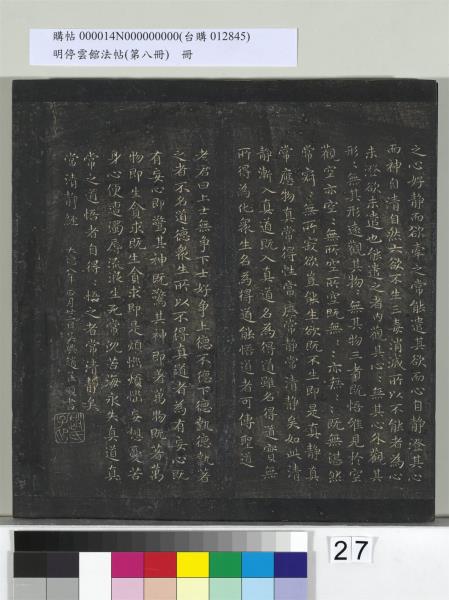 購帖 000014N000000000(台購 012845)
明停雲館法帖(第八冊)　冊
之心好静而欲牽之常能遣其欲而心自静澄其心
而神自清自然六欲不生三毒消滅所以不能者為心
未澄欲未遣也能遣之者内觀其心:無其心外觀其
形:無其形遠觀其物:無其物三者既悟唯見於空
觀空亦空:無所空所空既無:亦無:既無湛然
常寂:無所寂欲豈能生欲既不生即是真静真
常應物真常得性常應常静常清静矣如此清
静漸入真道既入真道名為得道雖名得道實無
所得為化衆生名為得道能悟道者可傳聖道
老君曰上士無争下士好争上德不德下德執德執著
之者不名道德衆生所以不得真道者為有妄心既
有妄心即驚其神既驚其神即著萬物既著萬
物即生貪求既生貪求即是煩惱煩惱妄想憂苦
身心便遭濁辱流浪生死常沈苦海永失真道真
常之道悟者自得:悟之者常清静矣
常清静經
27